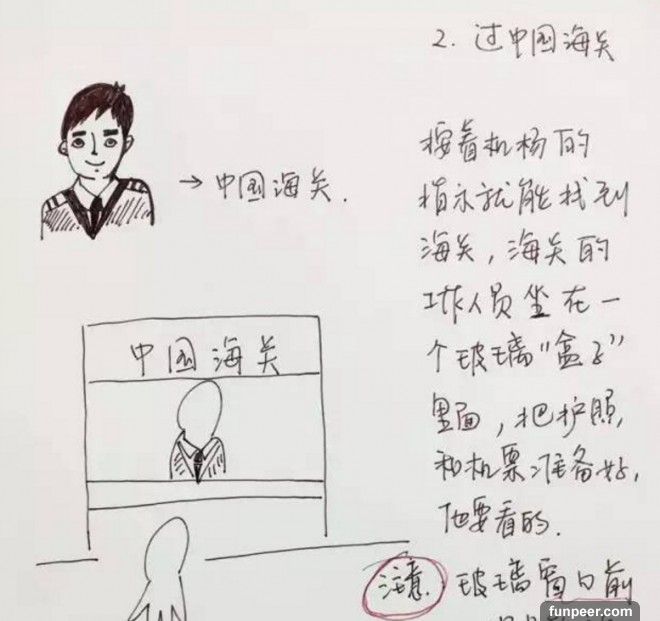 2. 过中国海关
→中国海关.
按着机杨的
指示就能找到
海关,海关的
工作人员坐在一
个玻璃"盒子"
里面,把护照,
和机票准备好,
他要看的.
中国海关
注意. 玻璃窗口前
funpeer.com